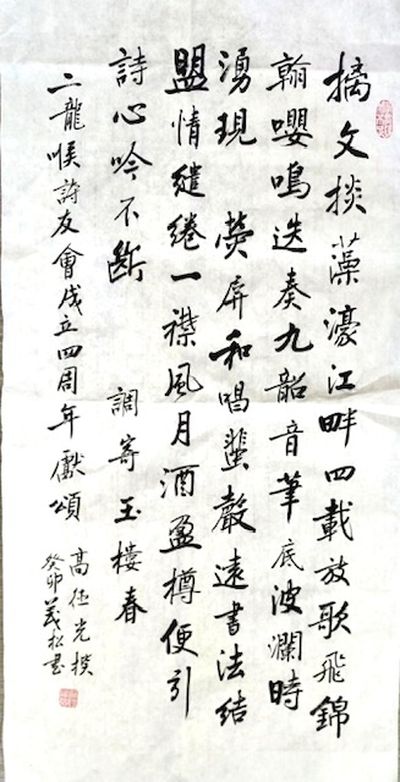 摛文掞藻濠江畔四載放歌飛錦
翰嚶鳴迭奏九韶音筆底波瀾時
湧現 熒屏和唱蜚聲遠書法結
盟情繾綣一襟風月酒盈樽便引
詩心吟不斷 調寄玉樓春
二龍喉詩友會成立四周年獻頌
高光撰
癸卯義松書